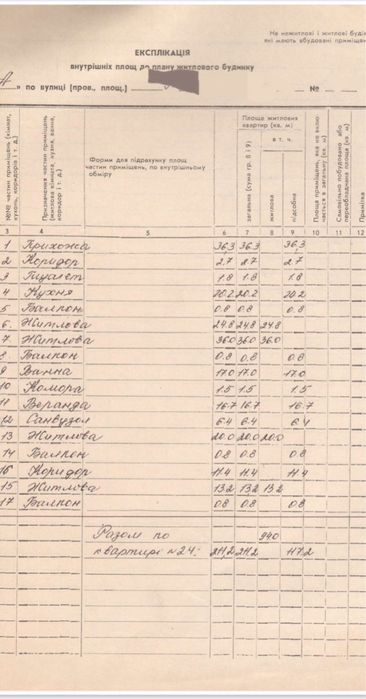 На нежитлові і житлові буді
які мають вбудовані приміщен
ЕКСПЛІКАЦІЯ
внутрішніх площ до плану житлового будинку
А" по вулиці (пров., площ.) № 
кухень, коридорів і т. д.)
Призначення частин приміщень (житлова кімната, кухня, ванна, коридор і т. д.)
Форми для підрахунку площ частин приміщень, по внутрішньому обміру
Площа житлових квартир (кв. м)
загальна (сума гр. 8 і 9)
в т. ч.
житлова
підсобна
Площа приміщень, яка не включається в загальну (кв. м)
Самовільно побудовано або переобладнана площа (кв. м)
Примітка
3 4 5 6 7 8 9 10 11 12
1 Прихожа 36,3 36,3 36,3
2 Коридор 2.7 2.7 2.7
3 Туалет 1.8 1.8 1.8
4 Кухня 20.2 20.2 20.2
5 Балкон 0.8 0.8 0.8
6. Житлова 24.8 24.8 24.8
7. Житлова 36.0 36.0 36.0
8 Балкон 0.8 0.8 0.8
9 Ванна 17.0 17.0 17.0
10 Комора 1.5 1.5 1.5
11 Веранда 16.7 16.7 16.7
12 Санвузол 6.4 6.4 6.4
13 Житлова 20.0 20.0 20.0
14 Балкон 0.8 0.8 0.8
16 Коридор 11.4 11.4 11.4
15 Житлова 13.2 13.2 13.2
17 Балкон 0.8 0.8 0.8
Разом по 94.0
квартирі №24: 211,2 211,2 117.2